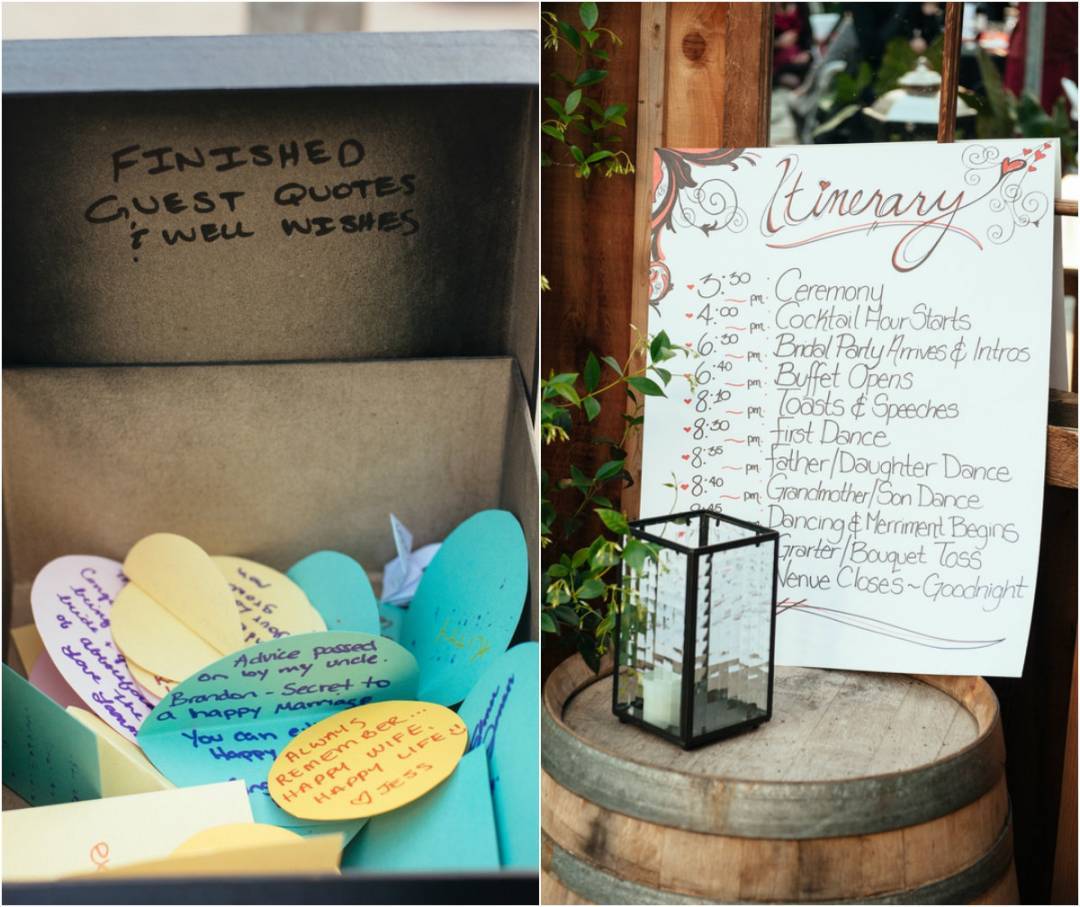 FINISHED
GUEST QUOTES
& WELL WISHES
Advice passed
on by my uncle.
Brandon - Secret to
a happy Marriage
You can
Happy
ALWAYS
REMEMBER...
HAPPY WIFE,
HAPPY LIFE!
JESS
bride &
of
Love
Itinerary
3:30 pm Ceremony
4:00 pm Cocktail Hour Starts
6:30 pm Bridal Party Arrives & Intros
6:40 pm Buffet Opens
8:10 pm Toasts & Speeches
8:30 pm First Dance
8:35 pm Father/Daughter Dance
8:40 pm Grandmother/Son Dance
Dancing & Merriment Begins
Grarter/Bouquet Toss
Venue Closes ~ Goodnight